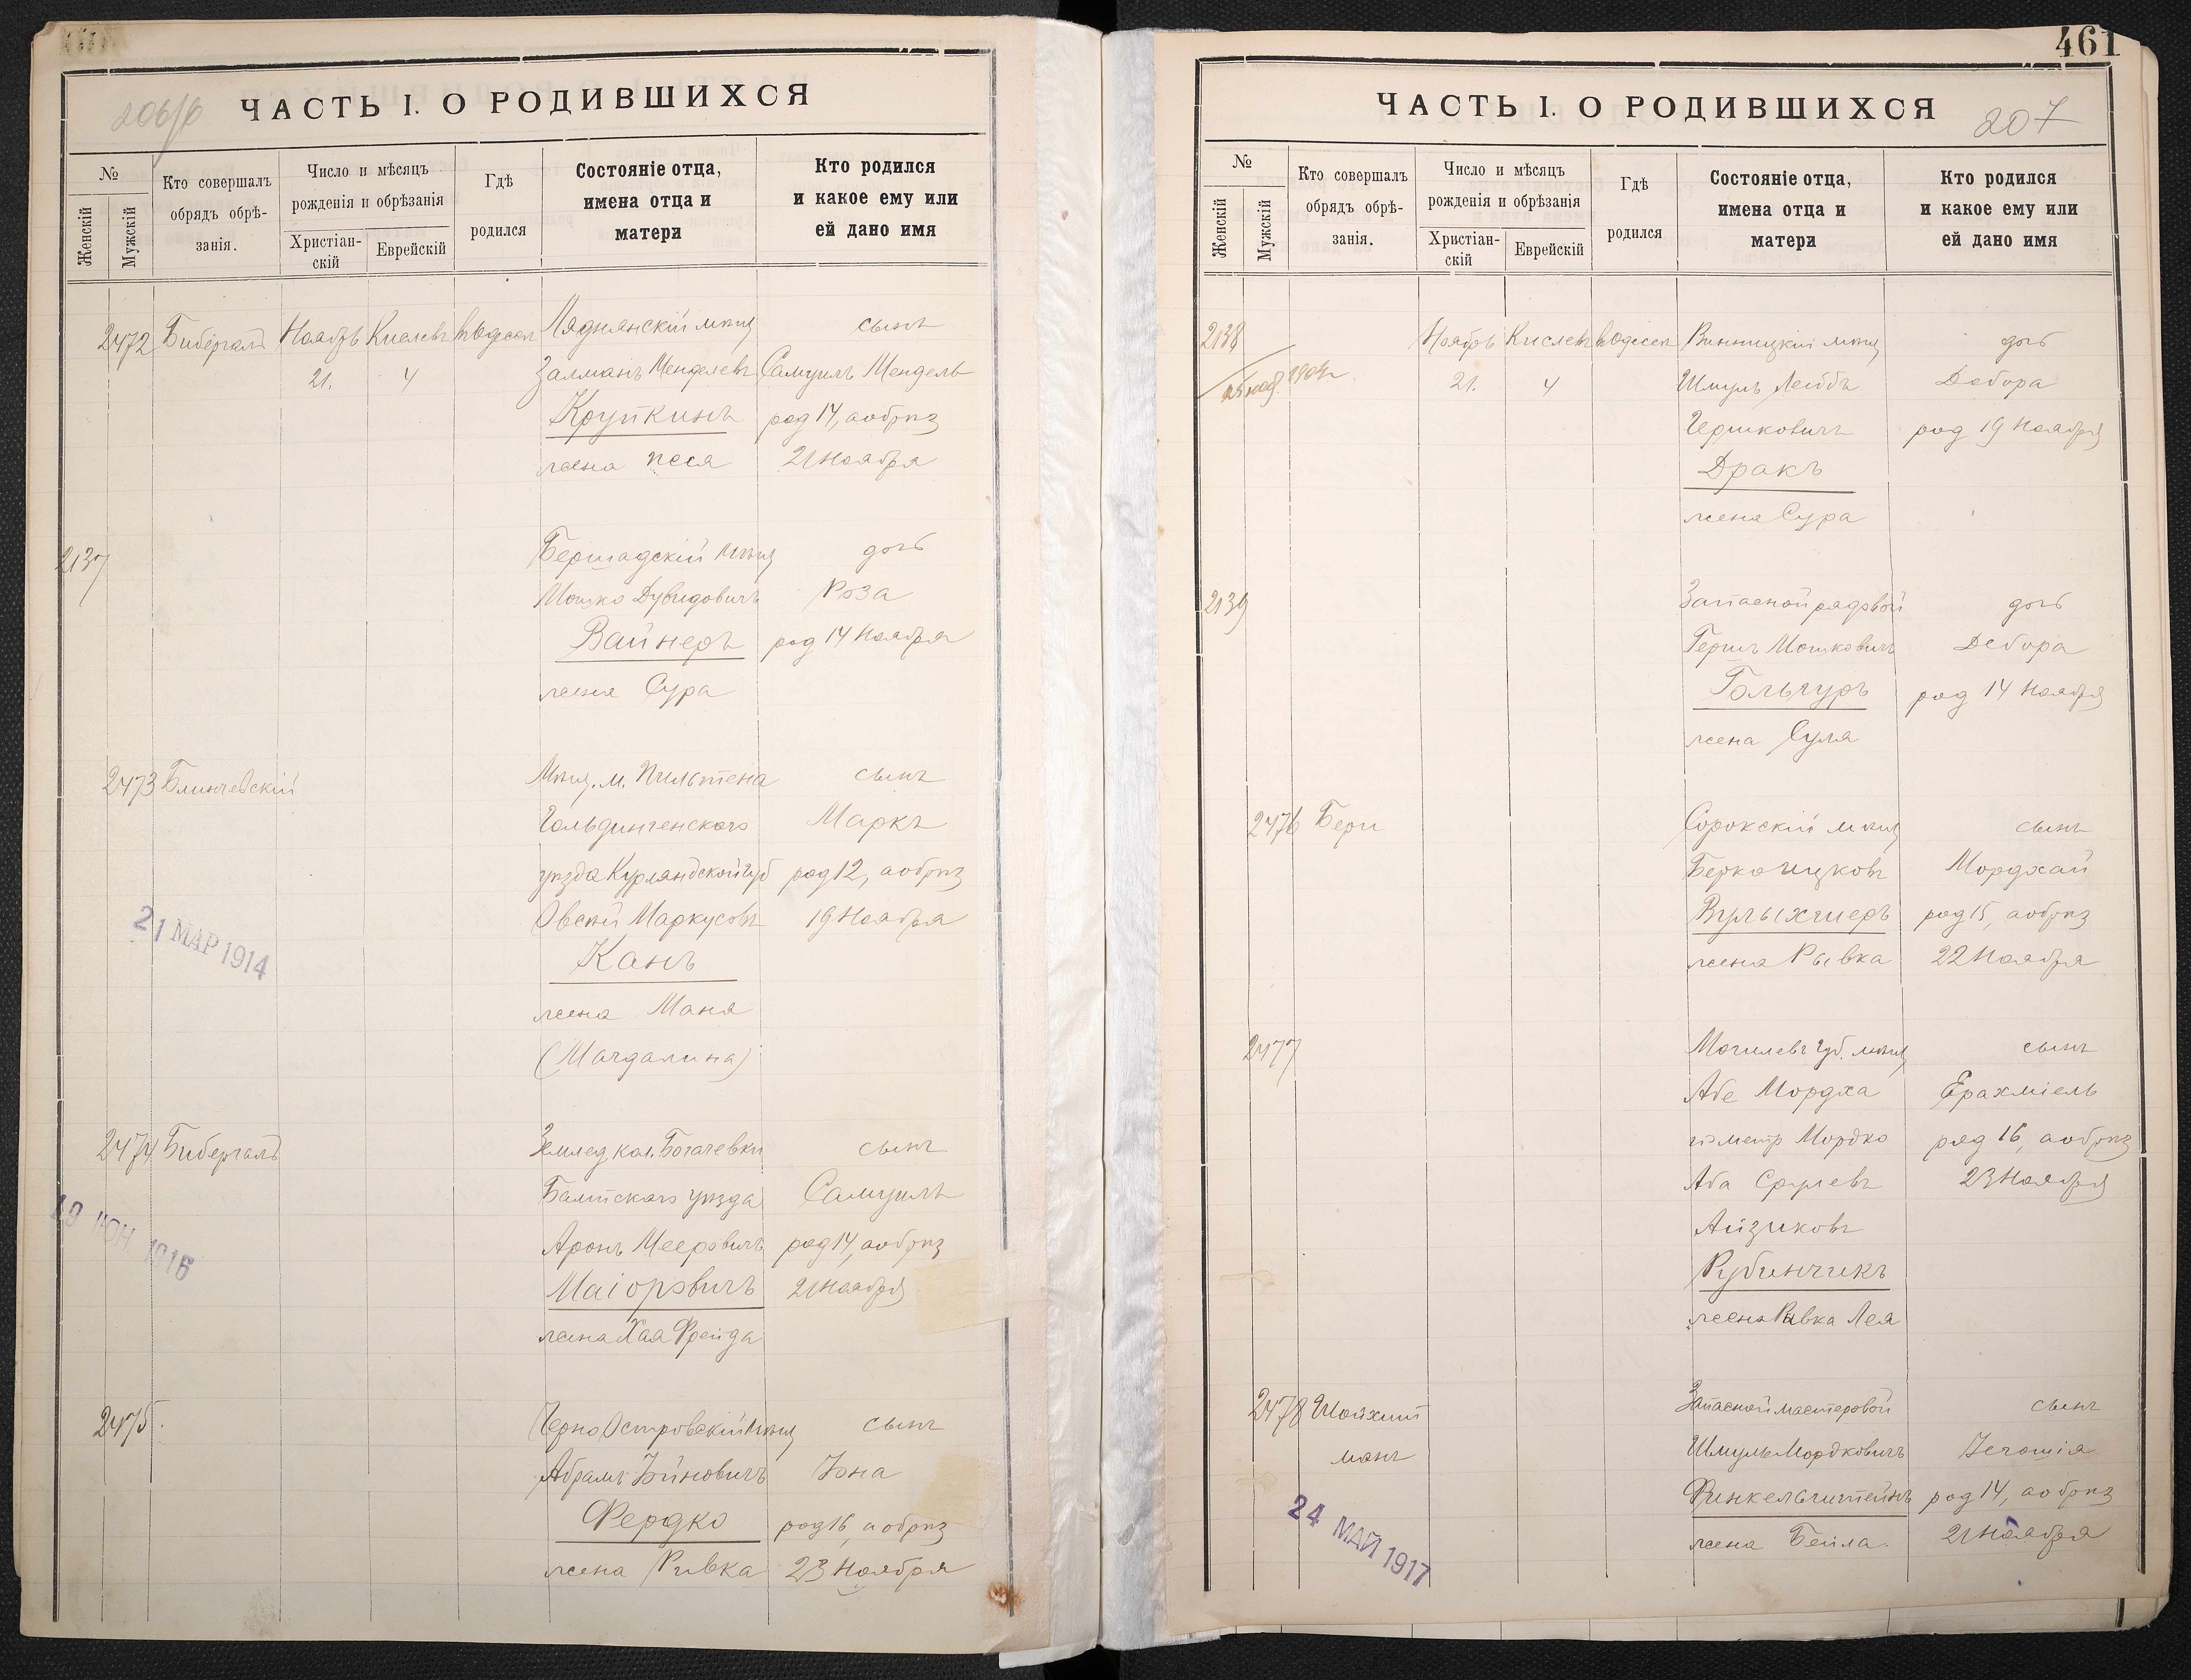 206/б
ЧАСТЬ I. О РОДИВШИХСЯ
№
Женскій
Мужскій
Кто совершалъ
обрядъ обрѣ-
занія.
Число и мѣсяцъ
рожденія и обрѣзанія
Христіан-
скій
Еврейскій
Гдѣ
родился
Состояніе отца,
имена отца и
матери
Кто родился
и какое ему или
ей дано имя
2472 Бибергалъ Ноябрь Кислевъ въ Одессѣ Ляднянскій мѣщ сынъ
21. 4 Залманъ Менделевъ Самуилъ Мендель
Крупкинъ род 14, а обрѣз
жена Песя 21 Ноября
2137 Бершадскій мѣщ дочь
Мошко Дувидовичъ Роза
Вайнеръ род 14 Ноября
жена Сура
2473 Блинчевскій Мѣщ. м. Пильтена сынъ
Гольдингенскаго Маркъ
уѣзда Курляндской губ род 12, а обрѣз
Овсѣй Маркусовъ 19 Ноября
Канъ
21 МАР 1914
жена Маня
(Магдалина)
2474 Бибергалъ Землед. кол. Богачевки сынъ
Балтскаго уѣзда Самуилъ
Аронъ Мееровичъ род 14, а обрѣз
19 ІЮН. 1916
Маіоровичъ 21 Ноября
жена Хая Фрейда
2475. Черно Островскій мѣщ сынъ
Абрамъ Іойновичъ Іона
Фердко род 16, а обрѣз
жена Ривка 23 Ноября
461
ЧАСТЬ I. О РОДИВШИХСЯ
207
№
Женскій
Мужскій
Кто совершалъ
обрядъ обрѣ-
занія.
Число и мѣсяцъ
рожденія и обрѣзанія
Христіан-
скій
Еврейскій
Гдѣ
родился
Состояніе отца,
имена отца и
матери
Кто родился
и какое ему или
ей дано имя
2138 Ноябрь Кислевъ въ Одессѣ Винницкій мѣщ дочь
21. 4 Шмуль Лейбъ Дебора
Гершковичъ род 19 Ноября
Дракъ
жена Сура
2139 Запасной рядовой дочь
Гершъ Мошковичъ Дебора
Гольчуръ род 14 Ноября
жена Сура
2476 Бери Сорокскій мѣщ сынъ
Берко Ицковъ Мордхай
Вулыхшеръ род 15, а обрѣз
жена Рывка 22 Ноября
2477 Могилевъ Губ. мѣщ сынъ
Абе Мордха Ерахміель
по метр Мордко род 16, а обрѣз
Аба Срулевъ 23 Ноября
Айзиковъ
Рубинчикъ
жена Рывка Лея
2478 Шойхит Запасной мастеровой сынъ
манъ Шмуль Мордковичъ Іегошія
Финкельштейнъ род 14, а обрѣз
жена Бейла. 21 Ноября
24 МАЙ 1917